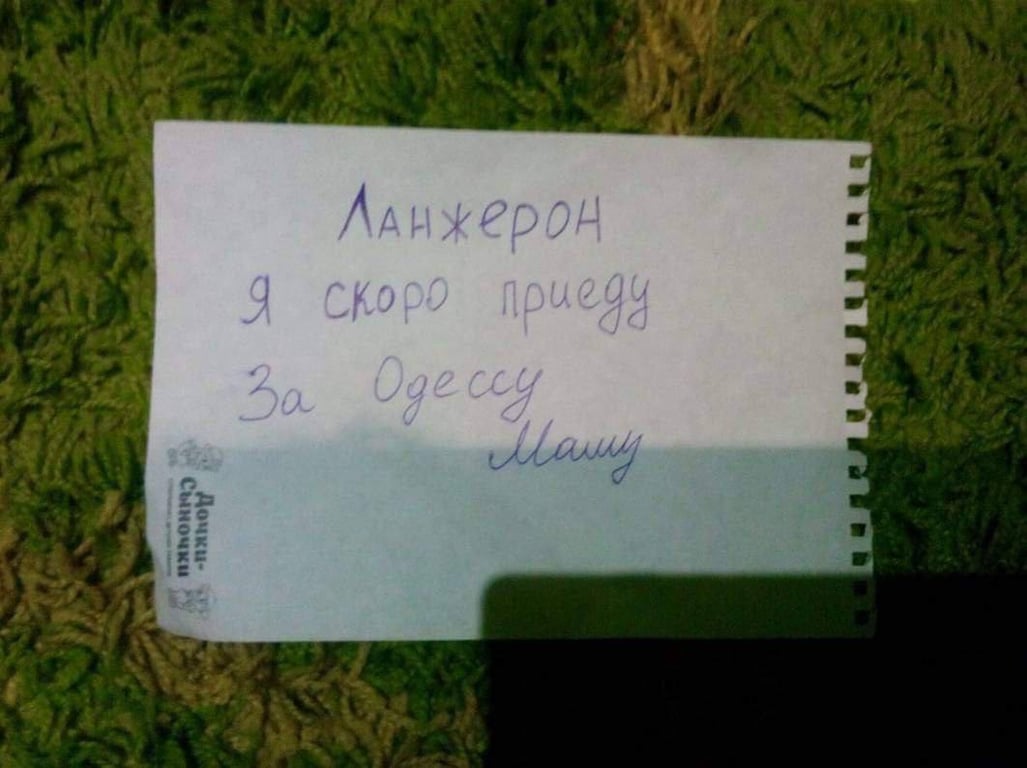 Ланжерон
Я скоро приеду
За Одессу
Машу
Дочки-
Сыночки